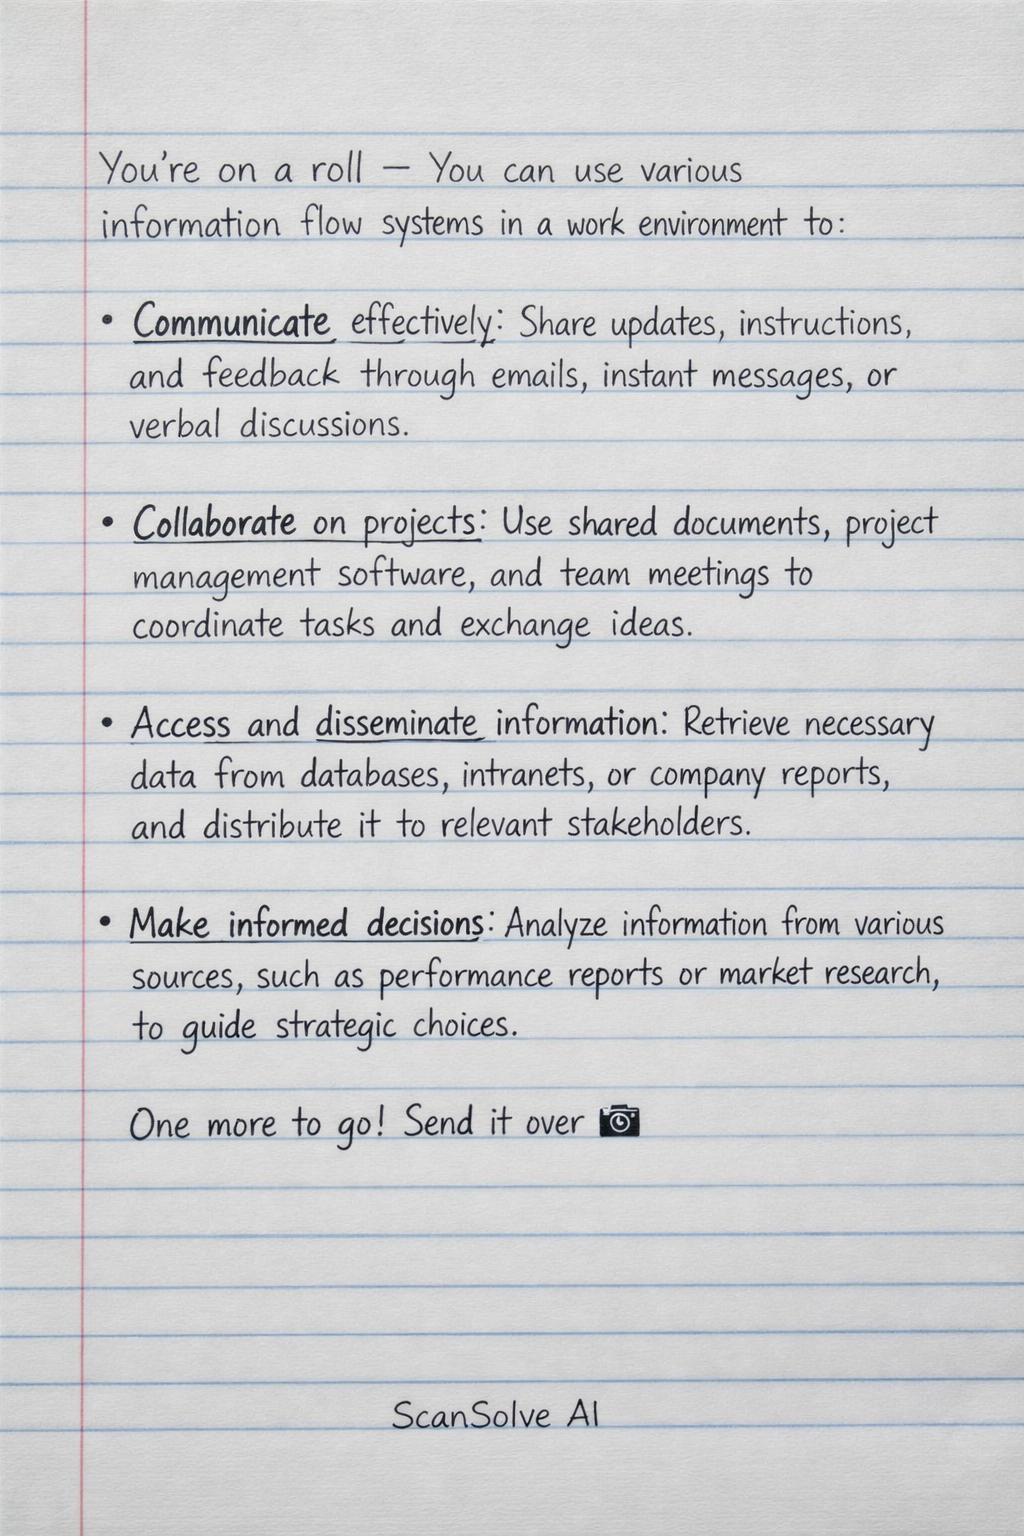 You're on a roll — You can use various
information flow systems in a work environment to:
• Communicate effectively: Share updates, instructions,
and feedback through emails, instant messages, or
verbal discussions.
• Collaborate on projects: Use shared documents, project
management software, and team meetings to
coordinate tasks and exchange ideas.
• Access and disseminate information: Retrieve necessary
data from databases, intranets, or company reports,
and distribute it to relevant stakeholders.
• Make informed decisions: Analyze information from various
sources, such as performance reports or market research,
to guide strategic choices.
One more to go! Send it over 📷
ScanSolve AI